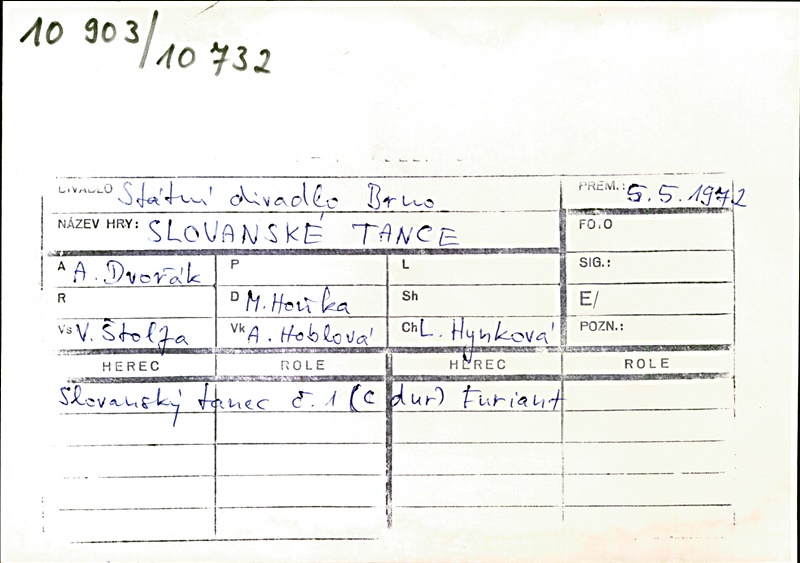 10 903/10 732
DIVADLO Státní divadlo Brno PREM.: 5.5.1972
NÁZEV HRY: SLOVANSKÉ TANCE FOTO
A A. Dvořák P L SIG.:
R D M. Houska Sh E/
Vs V. Štolfa Vk A. Hoblová Ch L. Hynková POZN.:
HEREC ROLE HEREC ROLE
Slovanský tanec č. 1 (C dur) Furiant